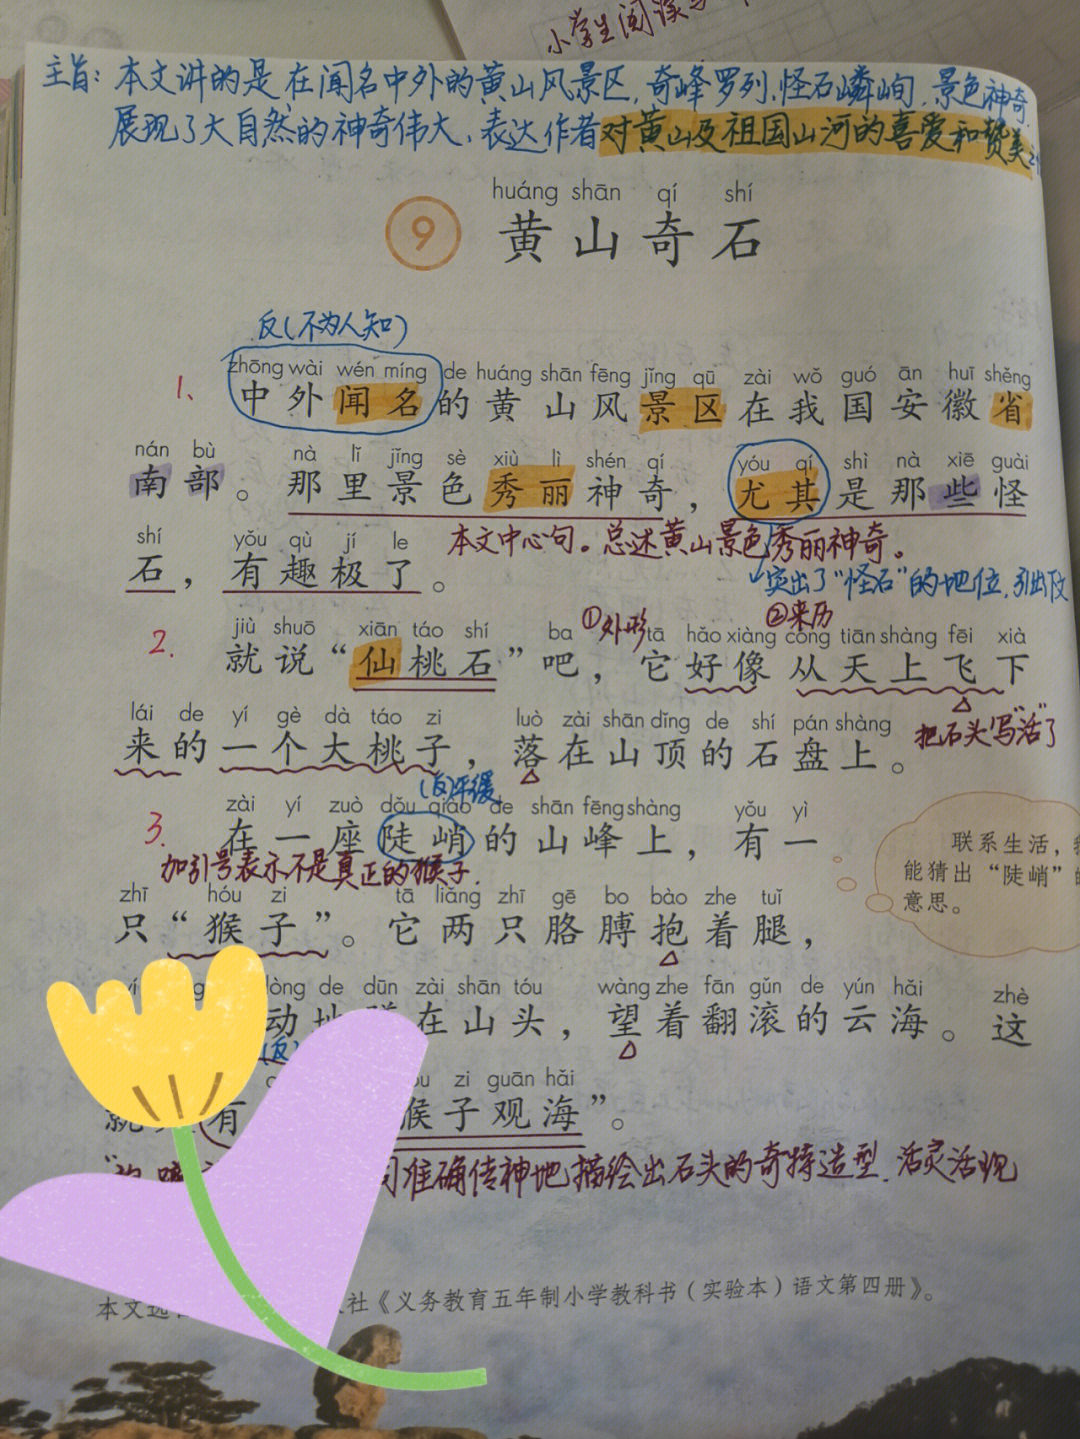 小学生阅读
主旨：本文讲的是在闻名中外的黄山风景区，奇峰罗列，怪石嶙峋，景色神奇，
展现了大自然的神奇伟大，表达作者对黄山及祖国山河的喜爱和赞美之
huáng shān qí shí
9 黄山奇石
反(不为人知)
zhōng wài wén míng de huáng shān fēng jǐng qū zài wǒ guó ān huī shěng
1、中外闻名的黄山风景区在我国安徽省
nán bù nà lǐ jǐng sè xiù lì shén qí yóu qí shì nà xiē guài
南部。那里景色秀丽神奇，尤其是那些怪
shí yǒu qù jí le
石，有趣极了。
本文中心句。总述黄山景色秀丽神奇。
突出了“怪石”的地位，引出下文
①外形 ②来历
jiù shuō xiān táo shí ba tā hǎo xiàng cóng tiān shàng fēi xià
2. 就说“仙桃石”吧，它好像从天上飞下
lái de yí gè dà táo zi luò zài shān dǐng de shí pán shàng
来的一个大桃子，落在山顶的石盘上。
把石头写“活”了
(反)平缓
zài yí zuò dǒu qiào de shān fēng shàng yǒu yì
3. 在一座陡峭的山峰上，有一
加引号表示不是真正的猴子.
zhī hóu zi tā liǎng zhī gē bo bào zhe tuǐ
只“猴子”。它两只胳膊抱着腿，
联系生活，我
能猜出“陡峭”的
意思。
dòng de dūn zài shān tóu wàng zhe fān gǔn de yún hǎi zhè
动地蹲在山头，望着翻滚的云海。这
(反)
zi guān hǎi
有 猴子观海”。
准确传神地描绘出石头的奇特造型，活灵活现
本文选 社《义务教育五年制小学教科书（实验本）语文第四册》。